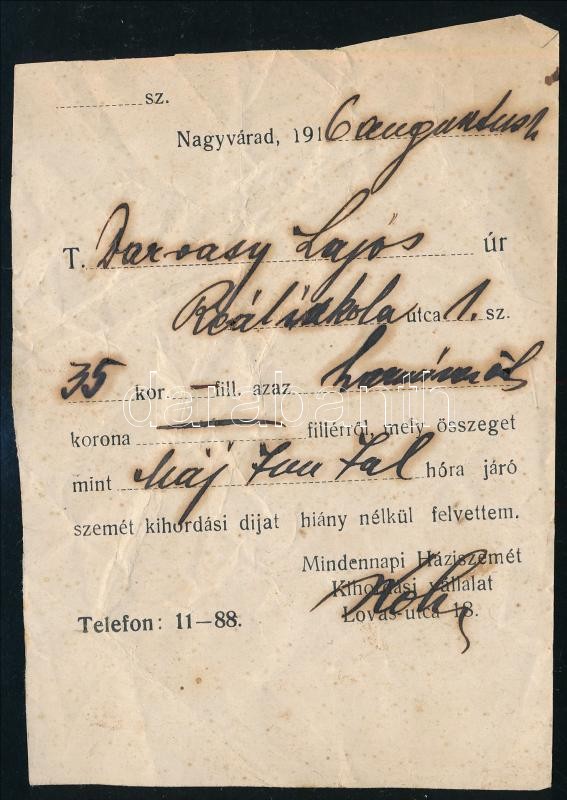 sz.
Nagyvárad, 1916 augusztus 1.
T. Darvasy Lajos úr
Reáliskola utca 1. sz.
35 kor. — fill. azaz
korona — fillérről, mely összeget
mint Máj Jun Jul hóra járó
szemét kihordási dijat hiány nélkül felvettem.
Mindennapi Háziszemét
Kihordási vállalat
Telefon: 11—88. Lovas-utca 18.
darabanth